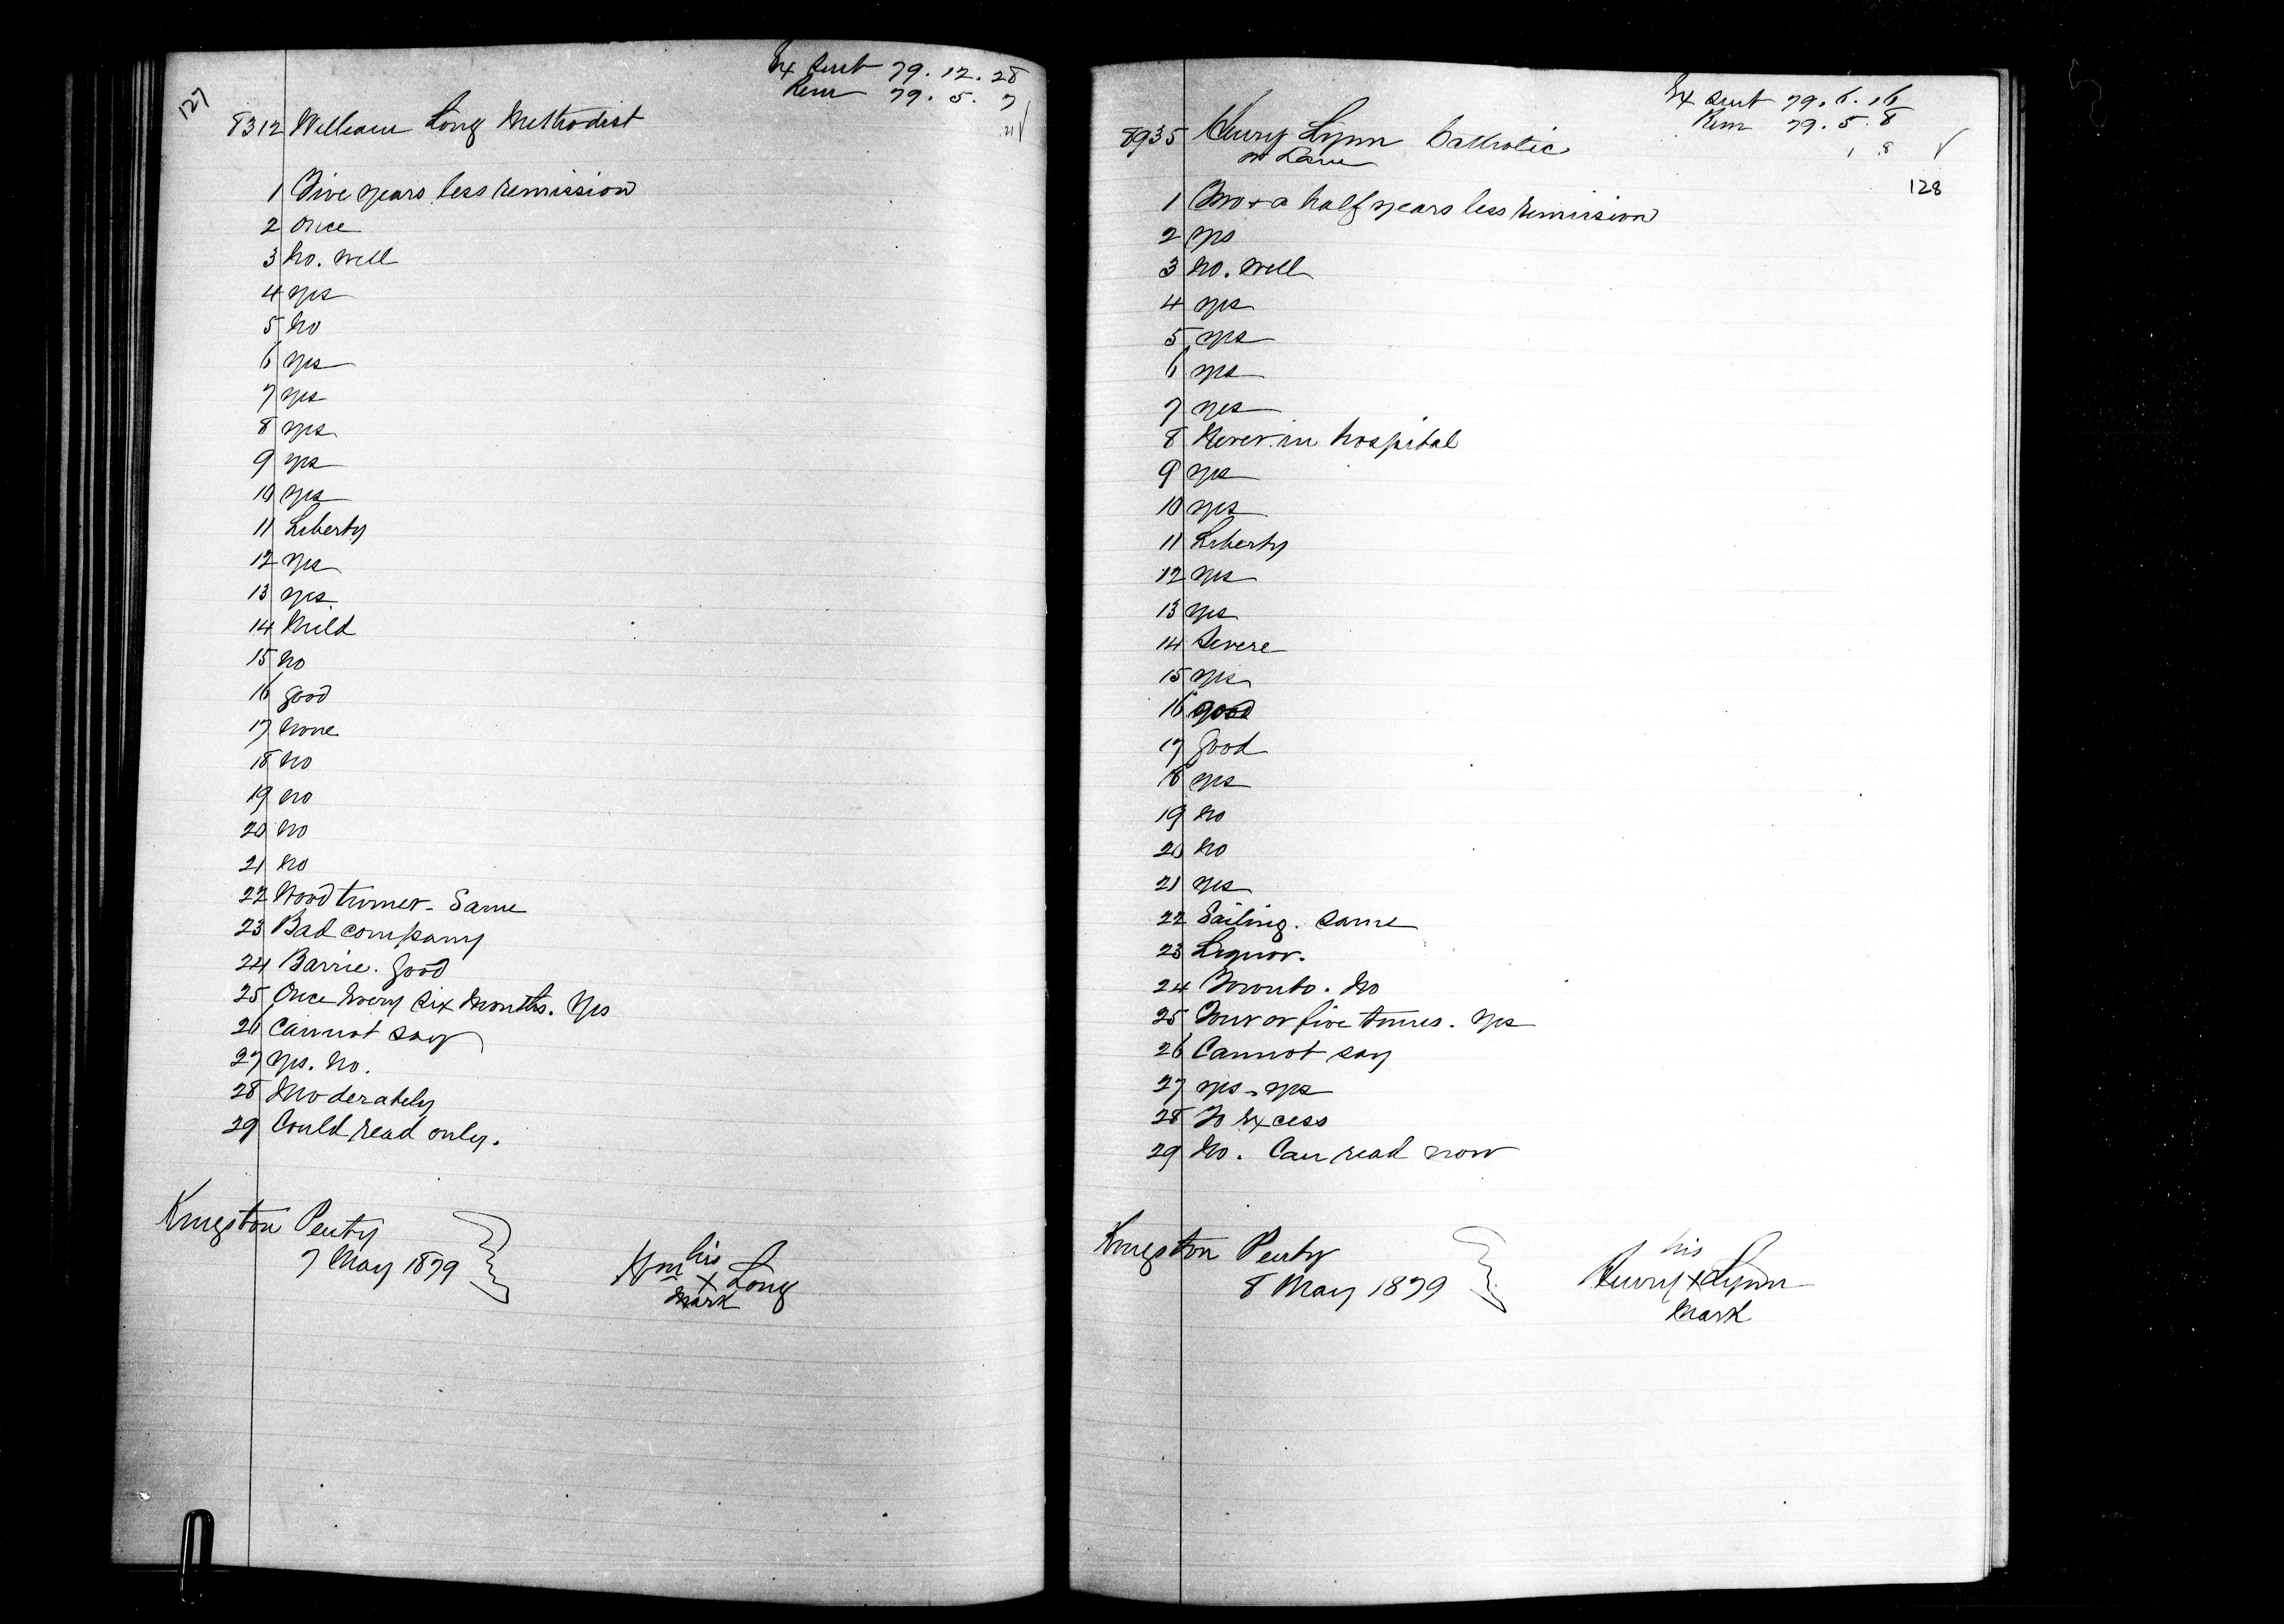 127
Ex Sent 79.12.28
Rem 79.5.7
21
8312 William Long Methodist
1 Five years less remission
2 Once
3 No. Well
4 Yes
5 No
6 Yes
7 Yes
8 Yes
9 Yes
10 Yes
11 Liberty
12 Yes
13 Yes
14 Mild
15 No
16 Good
17 None
18 No
19 No
20 No
21 No
22 Wood turner - Same
23 Bad company
24 Barrie. Good
25 Once every six months. Yes
26 Cannot say
27 Yes. No.
28 Moderately
29 Could read only.
Kingston Penty
7 May 1879
his
Wm X Long
Mark
Ex Sent 79.6.16
Rem 79.5.8
1 8
128
8935 Henry Lynn Catholic
or
1 Two & a half years less remission
2 Yes
3 No. Well
4 Yes
5 Yes
6 Yes
7 Yes
8 Never in hospital
9 Yes
10 Yes
11 Liberty
12 Yes
13 Yes
14 Severe
15 Yes
16 Good
17 Good
18 Yes
19 No
20 No
21 Yes
22 Sailing. Same
23 Liquor.
24 Toronto. No
25 Four or five times. Yes
26 Cannot say
27 Yes - Yes
28 To Excess
29 No. Can read now
Kingston Penty
8 May 1879
his
Henry X Lynn
Mark